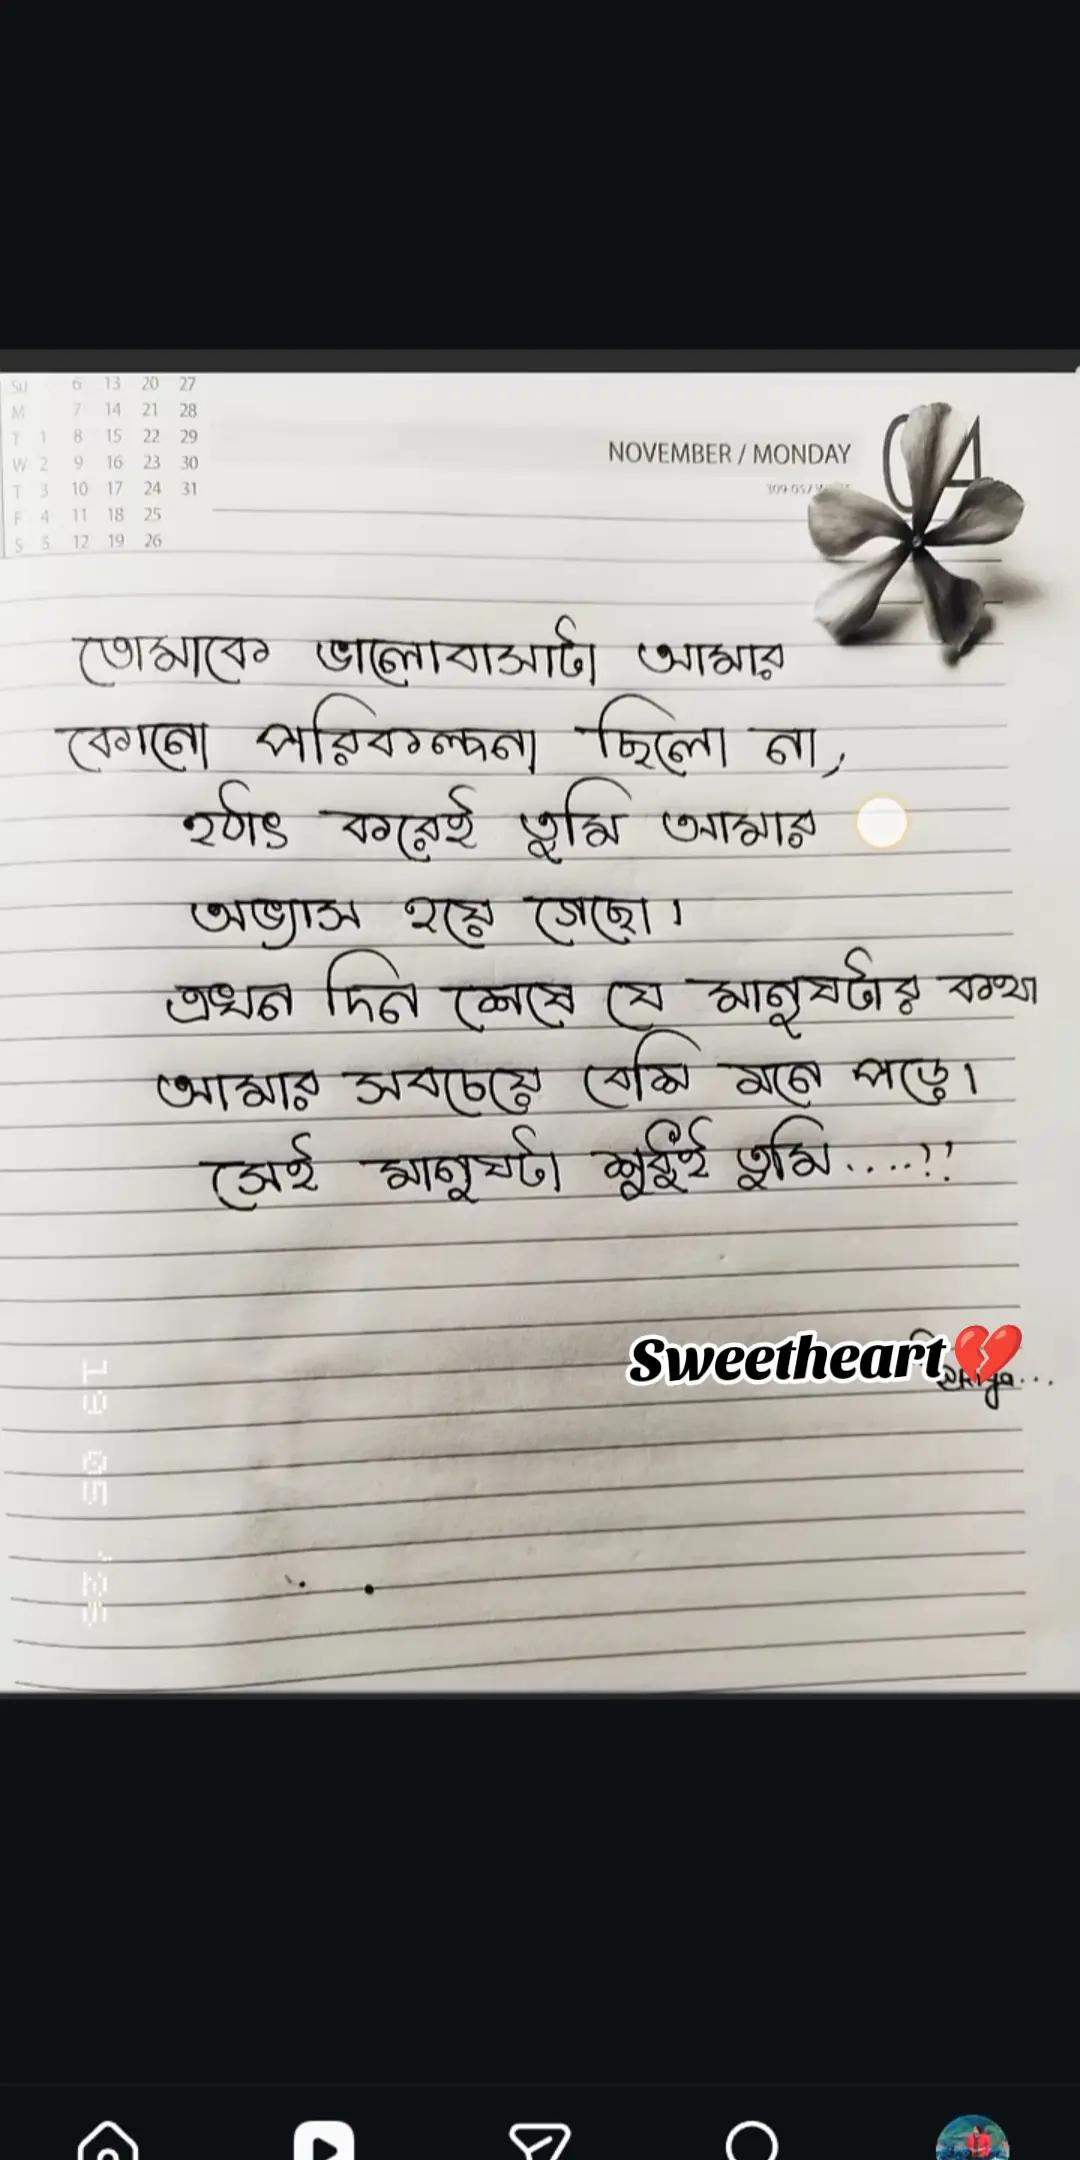 Su 6 13 20 27
M 7 14 21 28
T 1 8 15 22 29
W 2 9 16 23 30
T 3 10 17 24 31
F 4 11 18 25
S 5 12 19 26
NOVEMBER / MONDAY
04
তোমাকে ভালোবাসাটা আমার
কোনো পরিকল্পনা ছিলো না,
হঠাৎ করেই তুমি আমার
অভ্যাস হয়ে গেছো।
এখন দিন শেষে যে মানুষটার কথা
আমার সবচেয়ে বেশি মনে পড়ে।
সেই মানুষটা শুধুই তুমি....!!
Sweetheart💔
19 05 '25